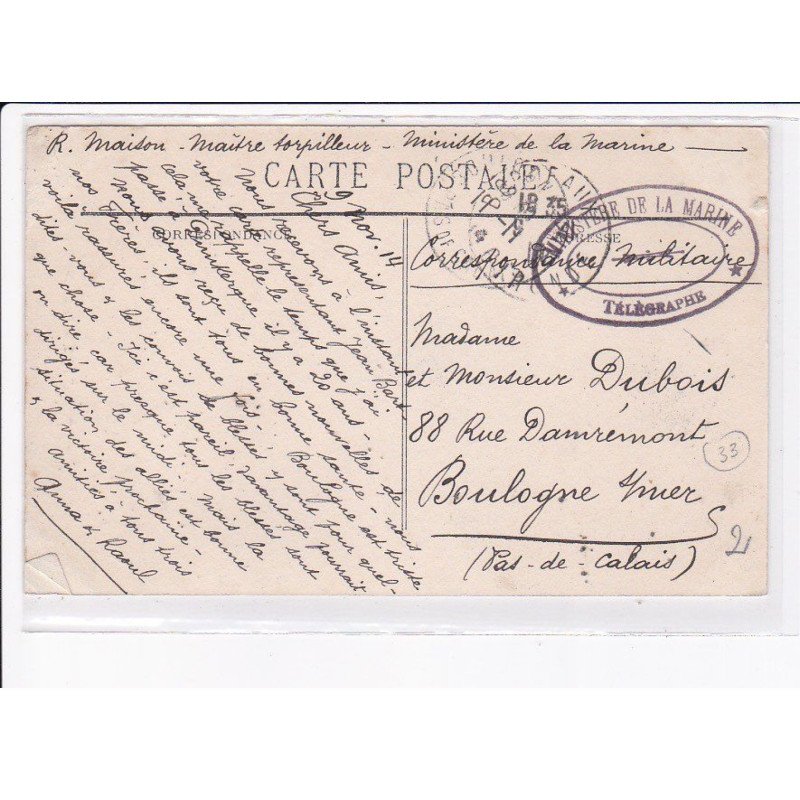 R. Maison - Maître torpilleur - Ministère de la Marine
CARTE POSTALE
CORRESPONDANCE
9 Nov. 14
Chers Amis,
Nous recevons à l'instant
votre carte représentant Jean-Bart,
cela me rappelle le temps que j'ai
passé à Dunkerque il y a 20 ans -
nous avons reçu de bonnes nouvelles de
nos Frères, ils sont tous en bonne santé - vous
voilà rassurés encore une fois - Boulogne est triste
dites-vous et les convois de blessés y sont pour quel-
que chose - Ici c'est pareil, davantage pourrait
on dire, car presque tous les blessés sont
dirigés sur le midi - mais la
situation des alliés est bonne
& la victoire prochaine -
amitiés à tous trois
Anna & Raoul
MINISTÈRE DE LA MARINE
TÉLÉGRAPHE
ADRESSE
Correspondance Militaire
Madame
et Monsieur Dubois
88 Rue Damrémont
Boulogne s/mer
(Pas-de-Calais)
33
2